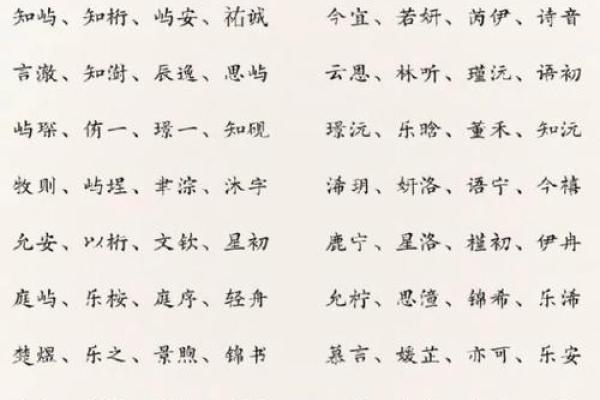 知屿、知桁、屿安、祐诚
今宜、若妍、芮伊、诗音
言澈、知澍、辰逸、思屿
云恩、林听、瑾沅、语初
屿琛、侑一、璟一、知砚
璟沅、乐晗、董禾、知沅
牧则、屿埕、聿淙、沐宇
浠玥、妍洛、语宁、今禧
允安、以桁、文钦、星初
鹿宁、星洛、槿初、伊冉
庭屿、乐桉、庭序、轻舟
允柠、思潼、锦希、乐浠
楚煜、乐之、景煦、锦书
慕言、媛芷、亦可、乐安